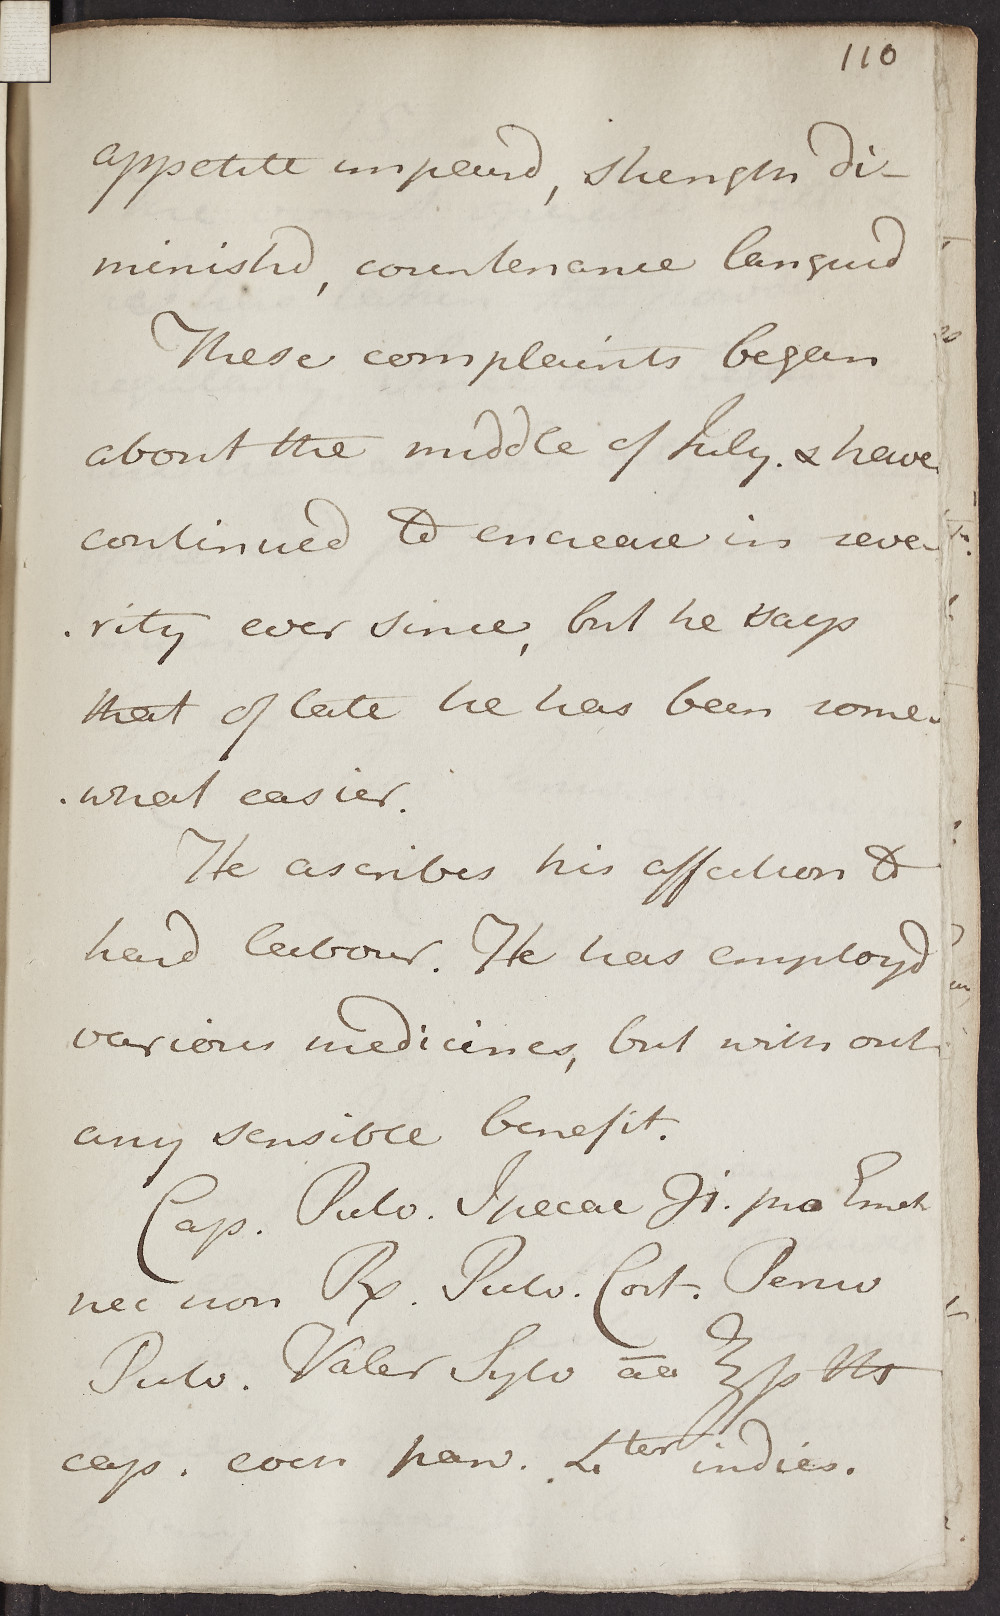 110
appetite impaird, strength di-
minishd, countenance languid
These complaints began
about the middle of July. & have
continued to encrease in seve-
.rity ever since, but he says
that of late he has been some-
.what easier.
He ascribes his affection to
hard labour. He has employd
various medicines, but without
any sensible benefit.
Cap. Pulv. Ipecac ℈i. pro Emet
nec non ℞. Pulv. Cort. Peruv
Pulv. Valer Sylv āā ʒβ
cap. coch parv. 4ter indies.